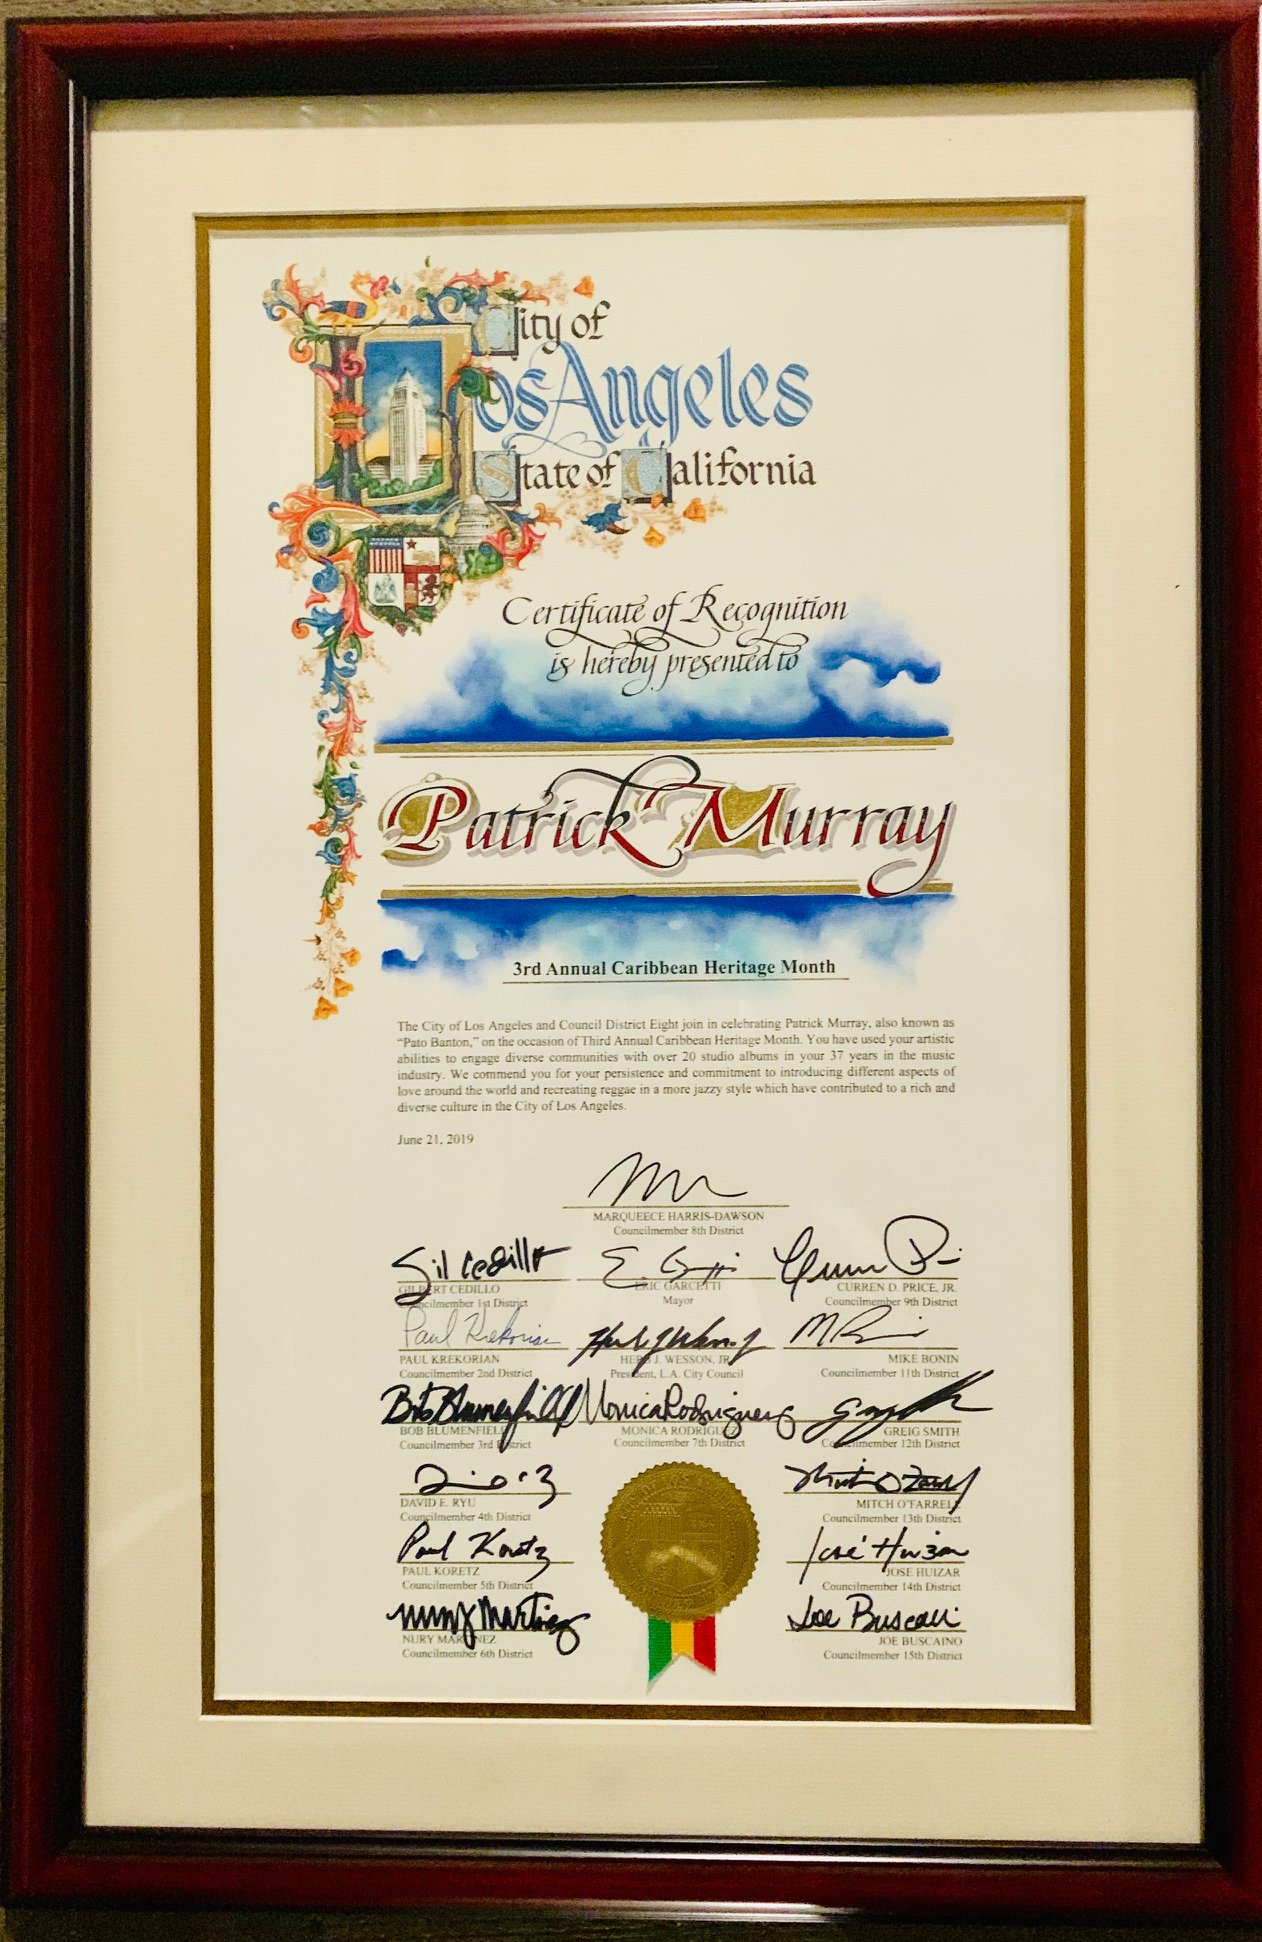 City of
Los Angeles
State of California
Certificate of Recognition
is hereby presented to
Patrick Murray
3rd Annual Caribbean Heritage Month
The City of Los Angeles and Council District Eight join in celebrating Patrick Murray, also known as
“Pato Banton,” on the occasion of Third Annual Caribbean Heritage Month. You have used your artistic
abilities to engage diverse communities with over 20 studio albums in your 37 years in the music
industry. We commend you for your persistence and commitment to introducing different aspects of
love around the world and recreating reggae in a more jazzy style which have contributed to a rich and
diverse culture in the City of Los Angeles.
June 21, 2019
MARQUEECE HARRIS-DAWSON
Councilmember 8th District
Gil Cedillo
GILBERT CEDILLO
Councilmember 1st District
ERIC GARCETTI
Mayor
CURREN D. PRICE, JR.
Councilmember 9th District
Paul Krekorian
PAUL KREKORIAN
Councilmember 2nd District
HERB J. WESSON, JR.
President, L.A. City Council
MIKE BONIN
Councilmember 11th District
Bob Blumenfield
BOB BLUMENFIELD
Councilmember 3rd District
Monica Rodriguez
MONICA RODRIGUEZ
Councilmember 7th District
GREIG SMITH
Councilmember 12th District
DAVID E. RYU
Councilmember 4th District
MITCH O'FARRELL
Councilmember 13th District
Paul Koretz
PAUL KORETZ
Councilmember 5th District
José Huizar
JOSE HUIZAR
Councilmember 14th District
Nury Martinez
NURY MARTINEZ
Councilmember 6th District
Joe Buscaino
JOE BUSCAINO
Councilmember 15th District